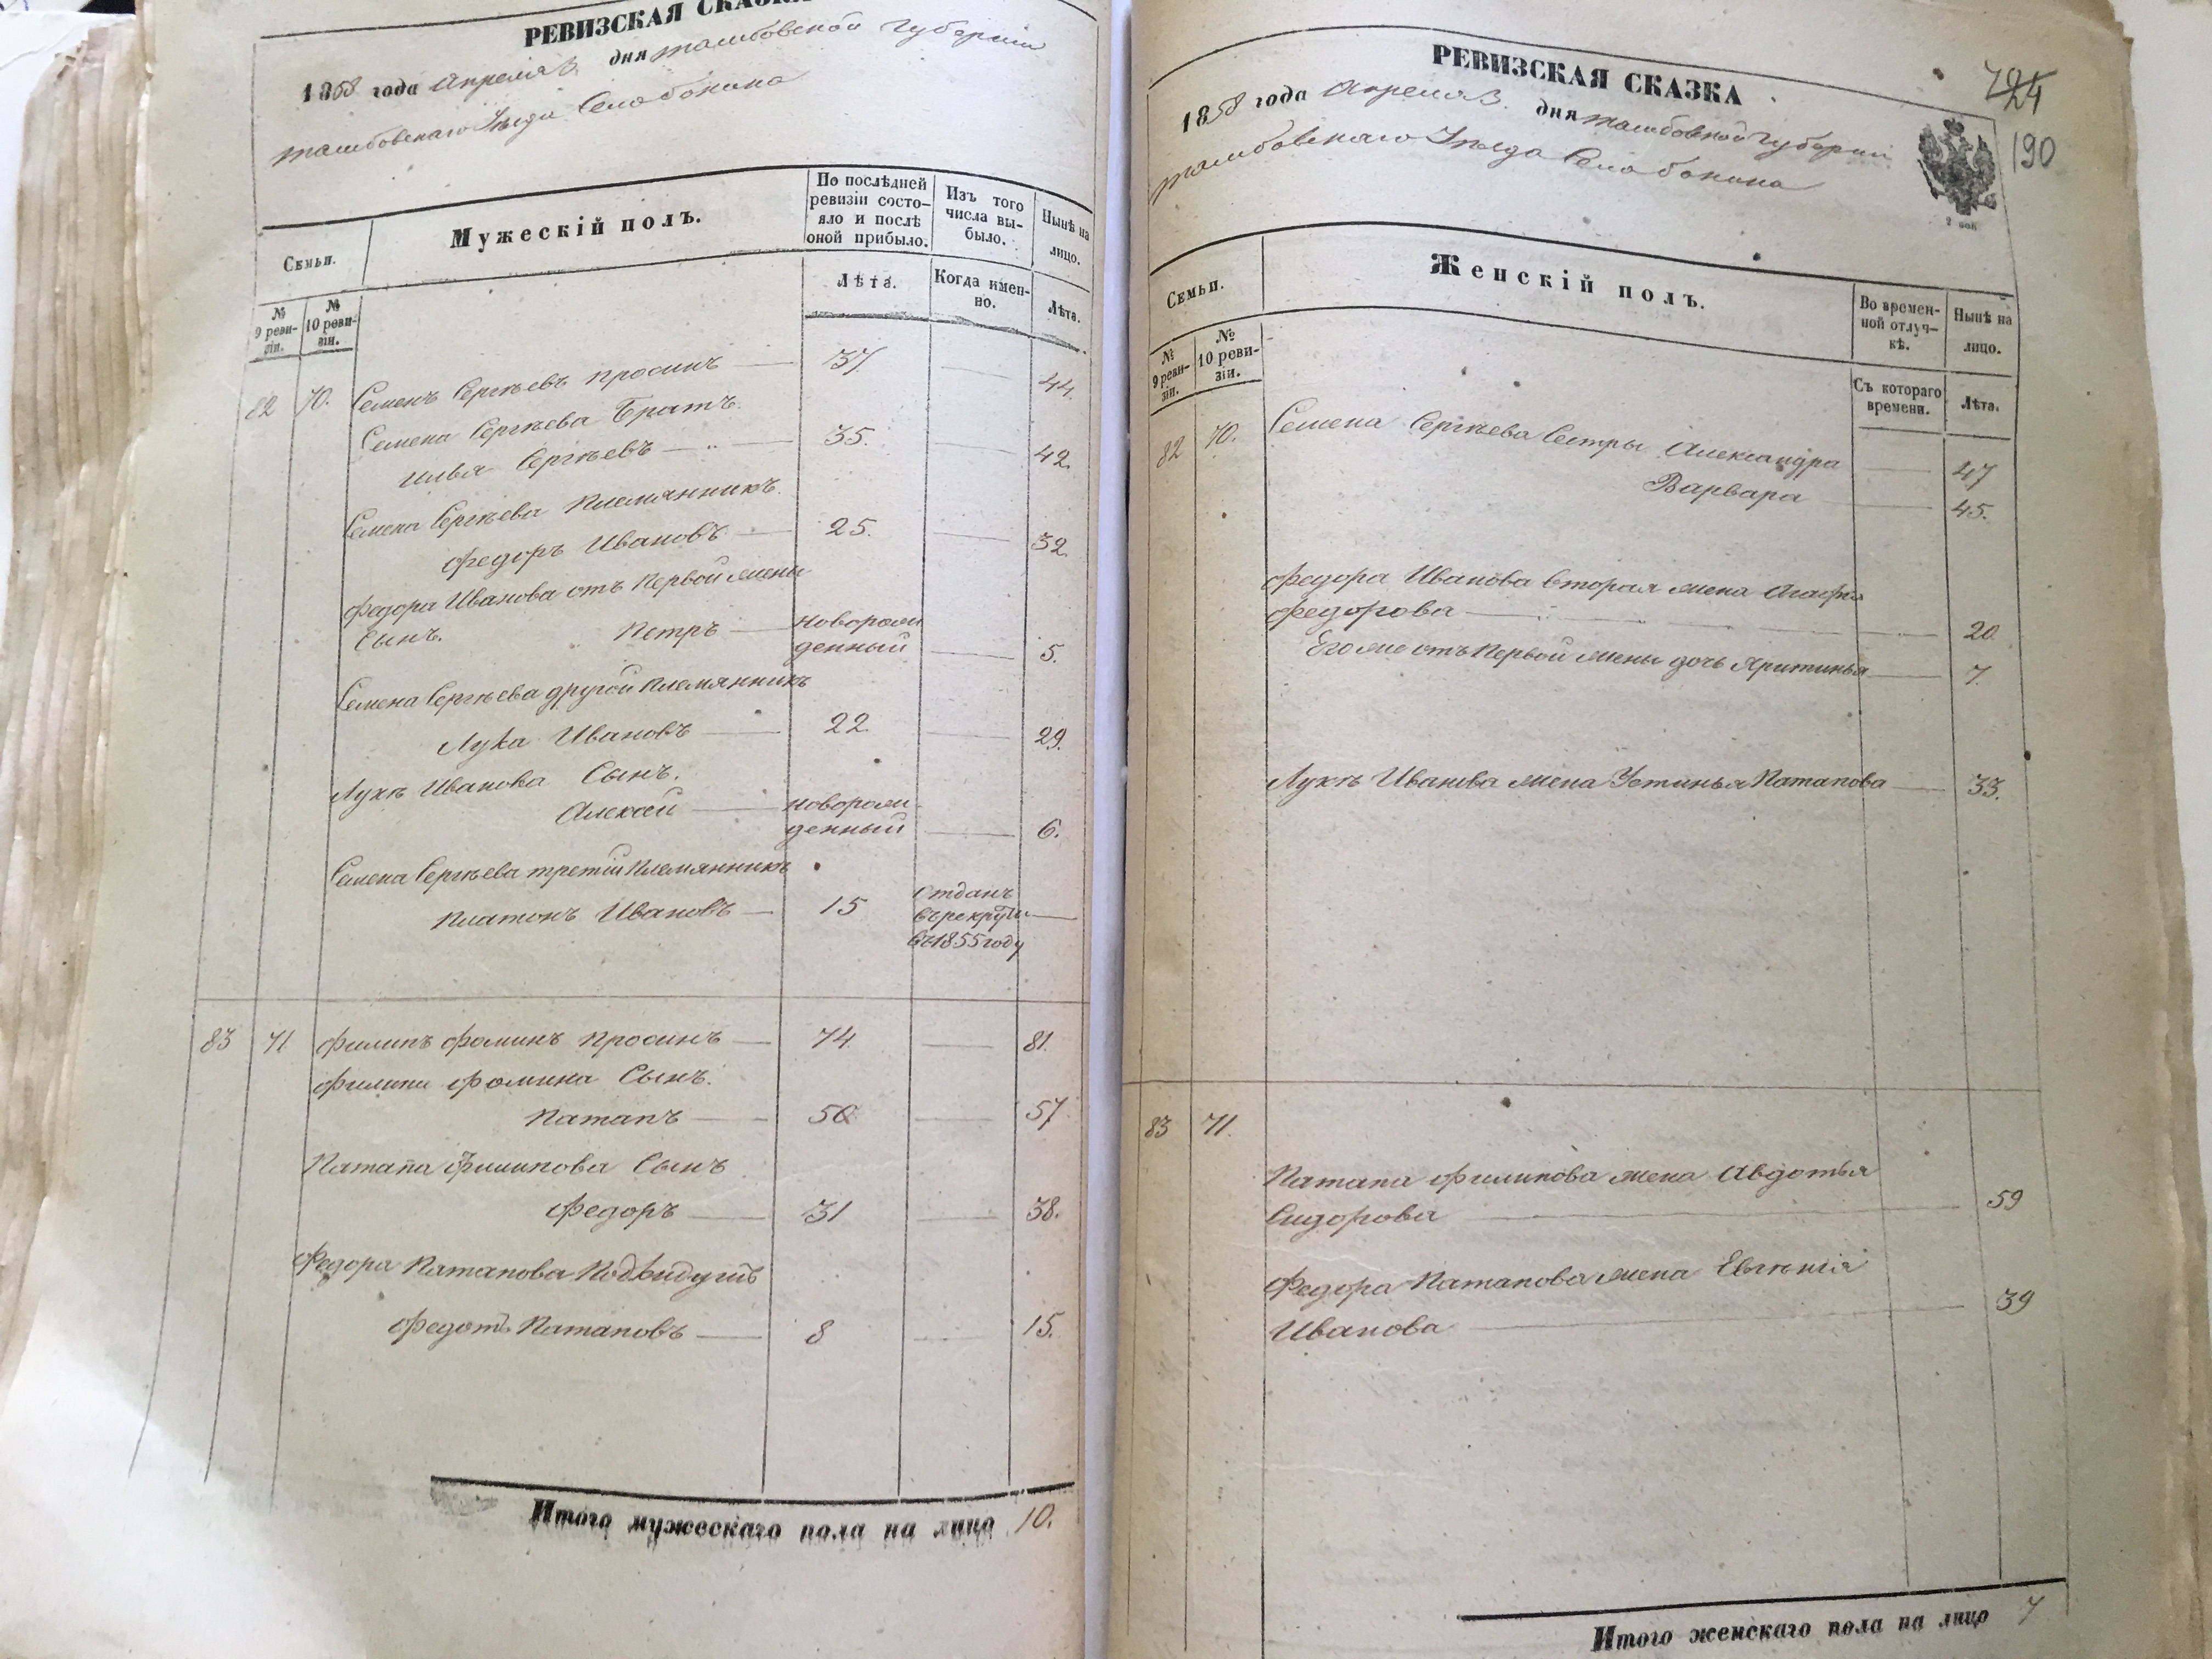 РЕВИЗСКАЯ СКАЗКА
1858 года Апреля 3. дня тамбовской губернии
тамбовскаго Уезда Села бокина
Семьи.
Мужескій полъ.
По послѣдней ревизіи состо-
яло и послѣ
оной прибыло.
Изъ того
числа вы-
было.
Нынѣ на
лицо.
№
9 реви-
зіи.
№
10 реви-
зіи.
Лѣта.
Когда имен-
но.
Лѣта.
82 70. Семенъ Сергѣевъ Просинъ 37 44.
Семена Сергѣева Братъ
Илья Сергѣевъ 35. 42.
Семена Сергѣева Племянникъ
Федоръ Ивановъ 25. 32.
Федора Иванова отъ Первой жены
Сынъ. Петръ новорож
денный 5.
Семена Сергѣева другой Племянникъ
Лука Ивановъ 22. 29.
Луки Иванова Сынъ.
Алексей новорож-
денный 6.
Семена Сергѣева третій Племянникъ
Платонъ Ивановъ 15 Отданъ
въ рекруты
въ 1855 году
83 71 Филипъ Фоминъ Просинъ 74 81.
Филипа Фомина Сынъ.
Патапъ 50 57.
Патапа Филипова Сынъ
Федоръ 31 38.
Федора Патапова
Федотъ Патаповъ 8 15.
Итого мужескаго пола на лицо 10.
РЕВИЗСКАЯ СКАЗКА
724
190
1858 года Апреля 3. дня тамбовской губернии
тамбовскаго Уезда Села бокина
Семьи.
Женскій полъ.
Во времен-
ной отлуч-
кѣ.
Нынѣ на
лицо.
№
9 реви-
зіи.
№
10 реви-
зіи.
Съ котораго
времени.
Лѣта.
82 70. Семена Сергѣева Сестры Александра 47
Варвара 45.
Федора Иванова вторая жена Агафья
Федорова 20
Его же отъ Первой жены дочь 7.
Луки Иванова жена Устинья Патапова 33.
83 71.
Патапа Филипова жена Авдотья
Сидорова 59
Федора Патапова жена Евгѣнія
Иванова 39
Итого женскаго пола на лицо 7